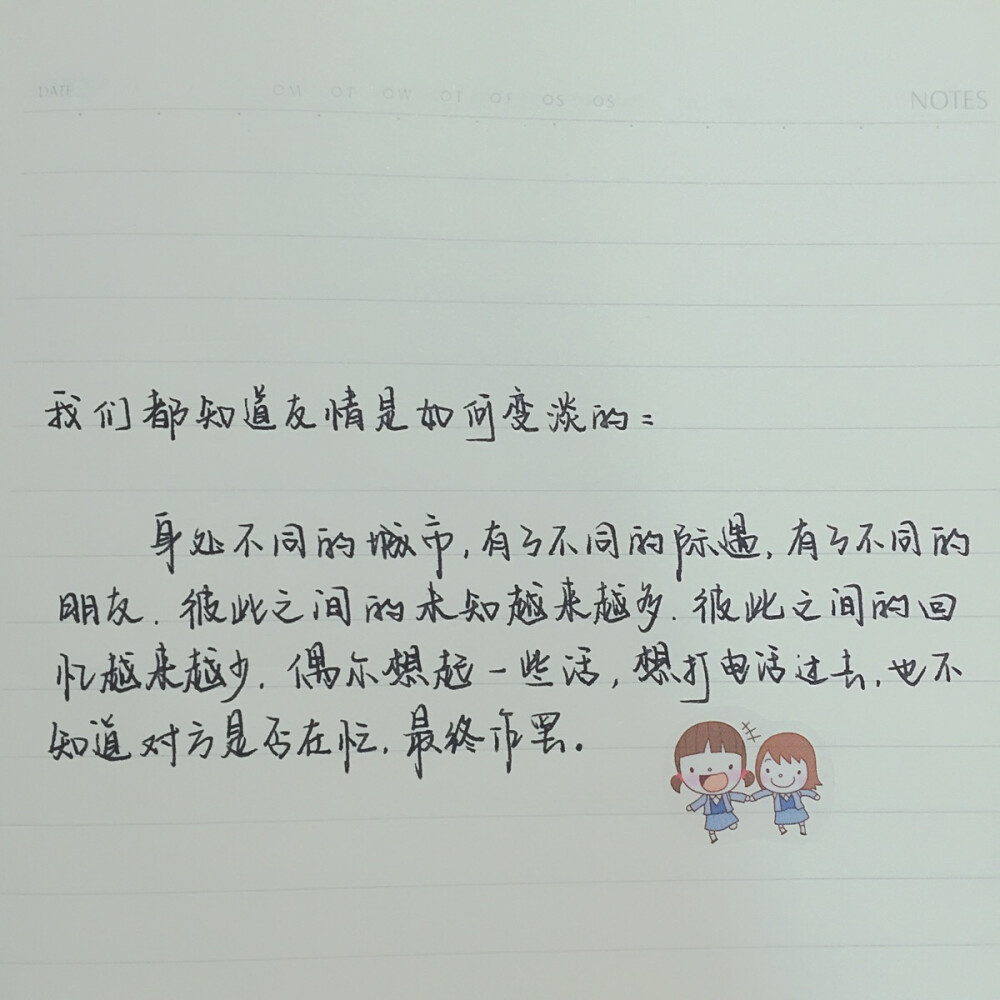 DATE MO TO WO TO FO SO SO NOTES
我们都知道友情是如何变淡的：
身处不同的城市，有了不同的际遇，有了不同的
朋友．彼此之间的未知越来越多．彼此之间的回
忆越来越少．偶尔想起一些话，想打电话过去，也不
知道对方是否在忙．最终作罢。